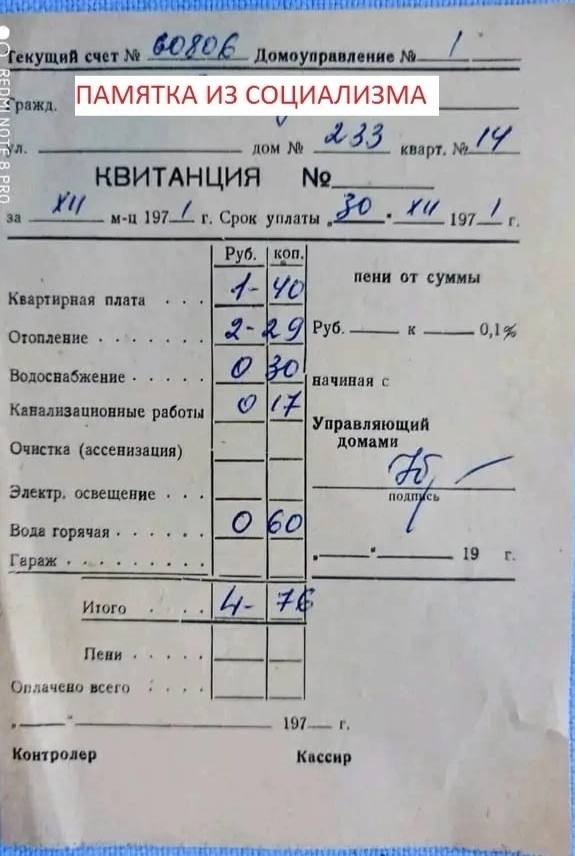 Текущий счет № 60806 Домоуправление № 1
ПАМЯТКА ИЗ СОЦИАЛИЗМА
Гражд.
ул. дом № 233 кварт. № 14
КВИТАНЦИЯ №
за XII м-ц 1971 г. Срок уплаты „30" XII 1971 г.
Руб. коп.
пени от суммы
Квартирная плата . . . 1- 40
Отопление . . . . . . . 2- 29
Руб. к 0,1%
Водоснабжение . . . . . 0 30
начиная с
Канализационные работы 0 17
Управляющий
домами
Очистка (ассенизация)
подпись
Электр. освещение . . .
Вода горячая . . . . . . 0 60
„ " 19 г.
Гараж . . . . . . . . .
Итого . . . . 4- 76
Пени . . . . .
Оплачено всего . . . .
„ " 197 г.
Контролер Кассир
REDMI NOTE 8 PRO